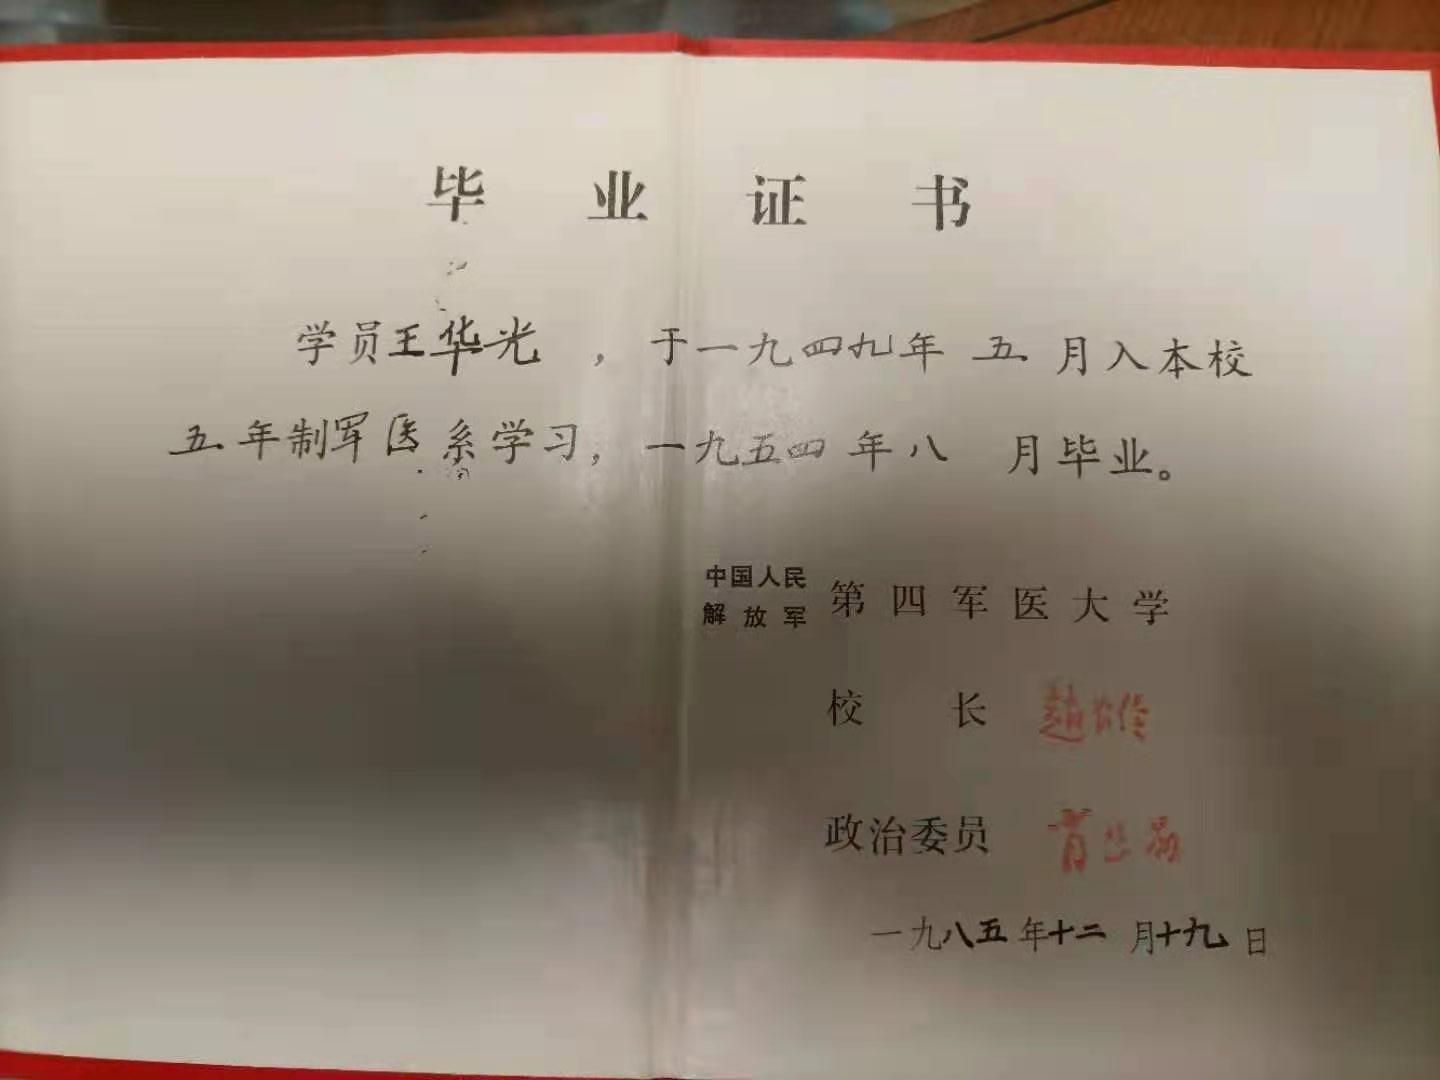 毕业证书
学员王华光，于一九四九年五月入本校
五年制军医系学习，一九五四年八月毕业。
中国人民
解放军
第四军医大学
校长
政治委员
一九八五年十二月十九日